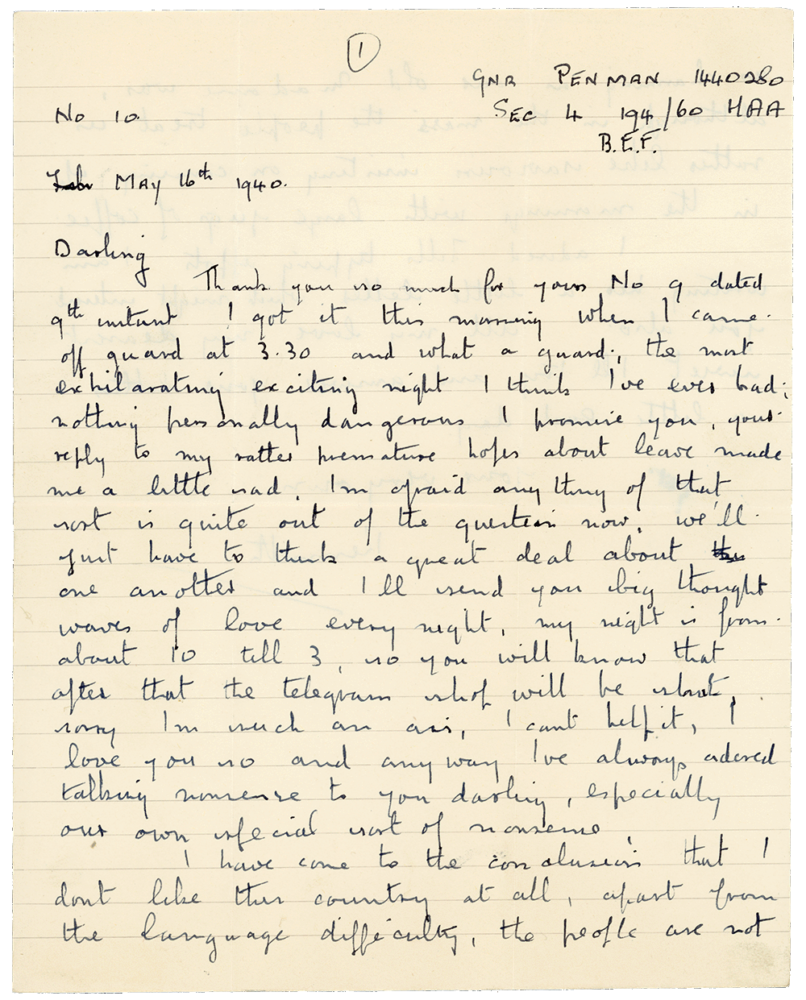 1
GNR PENMAN 1440280
No 10. SEC 4 194/60 HAA
B.E.F.
Feb MAY 16th 1940.
Darling
Thank you so much for yours No 9 dated
9th instant I got it this morning when I came
off guard at 3.30 and what a guard, the most
exhilarating exciting night I think I've ever had;
nothing personally dangerous I promise you, your
reply to my rather premature hopes about leave made
me a little sad. I'm afraid any thing of that
sort is quite out of the question now, we'll
just have to think a great deal about the
one another and I'll send you big thought
waves of love every night, my night is from
about 10 till 3, so you will know that
after that the telegram shop will be shut,
sorry Im such an ass, I cant help it, I
love you so and anyway I've always adored
talking nonsense to you darling, especially
our own special sort of nonsense.
I have come to the conclusion that I
dont like this country at all, apart from
the language difficulty, the people are not